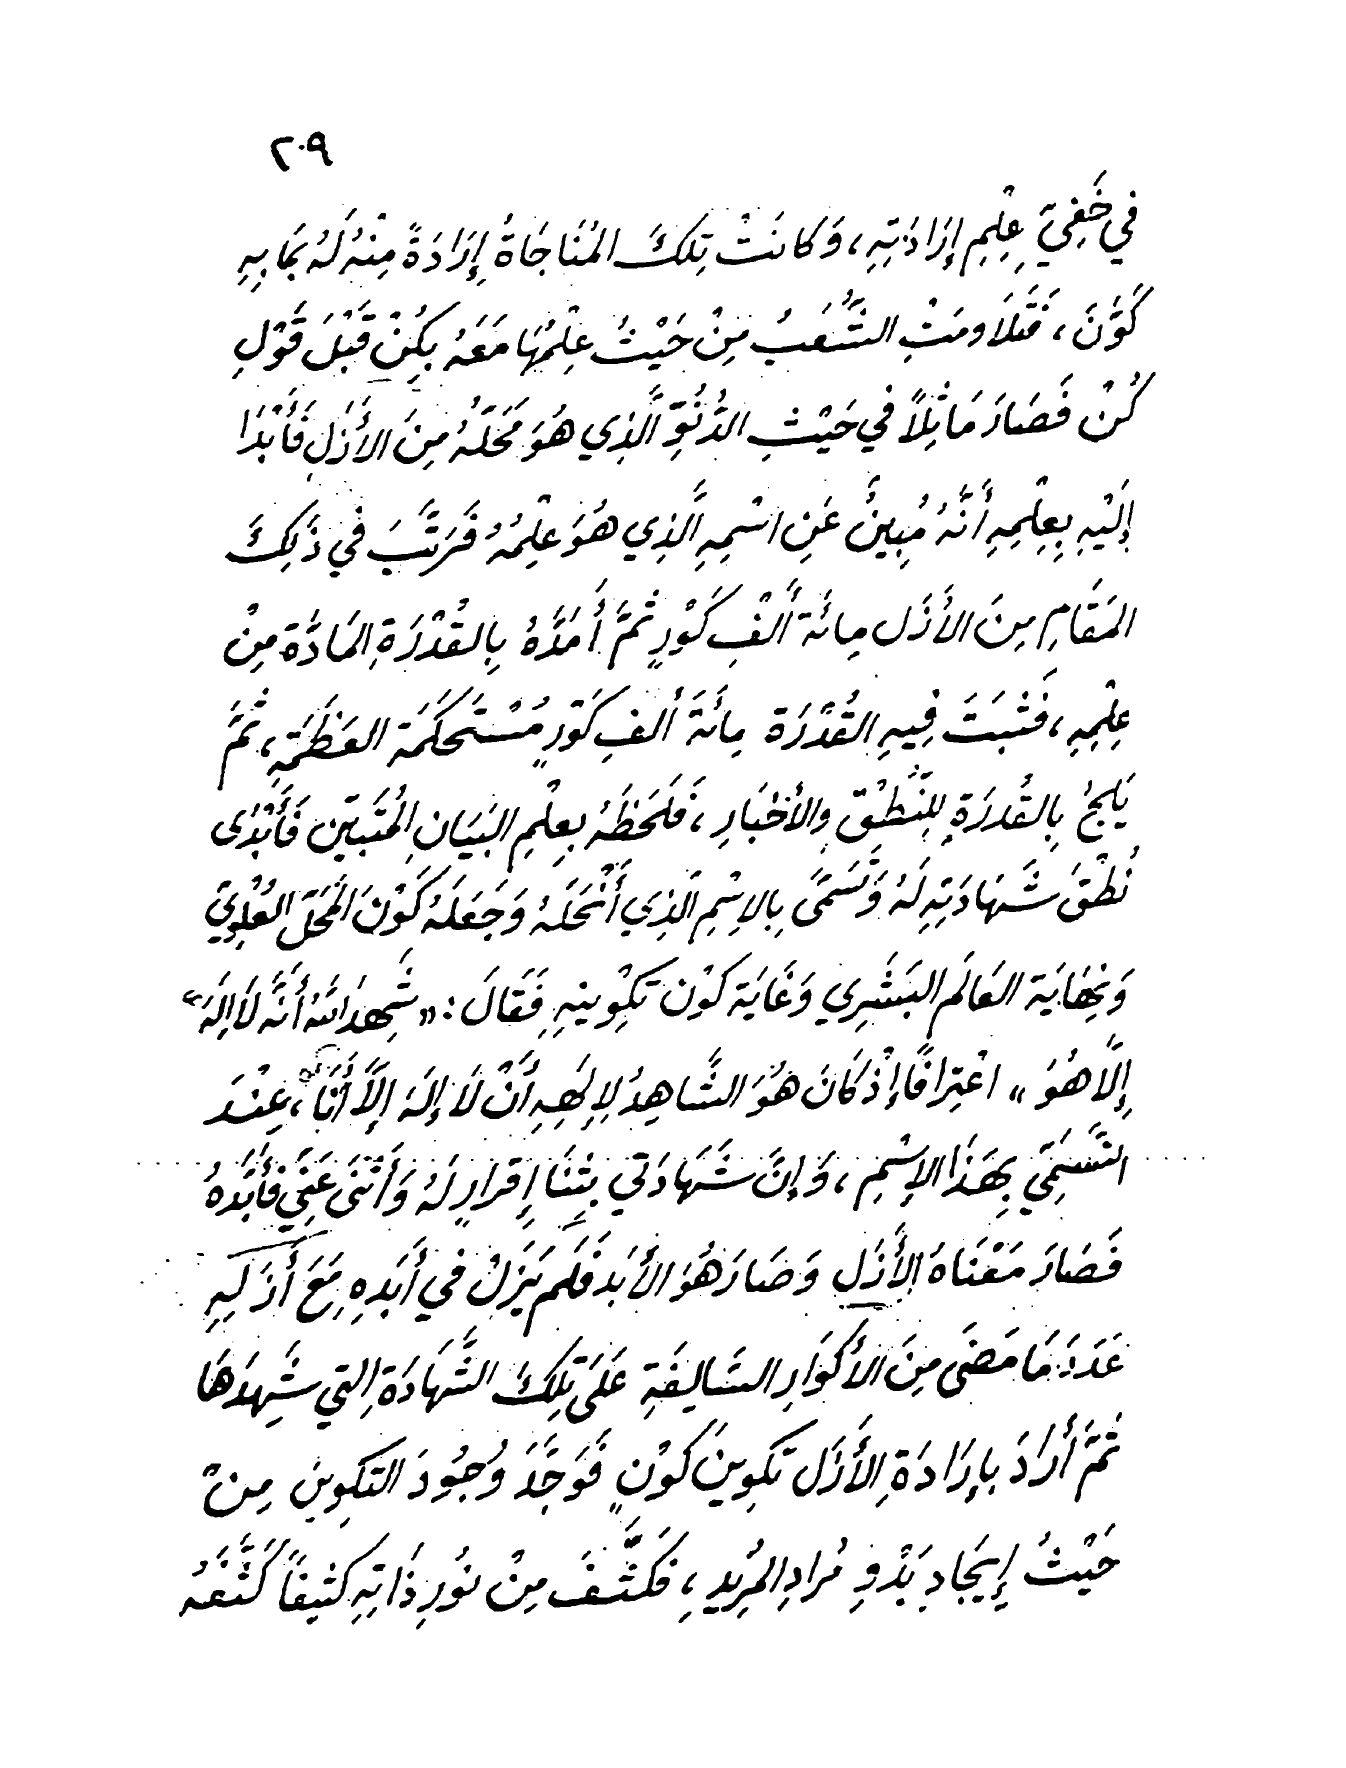 ٢٠٩
فِي خَفِيِّ عِلْمِ إِرَادَتِهِ، وَكَانَتْ تِلْكَ المُنَاجَاةُ إِرَادَةً مِنْهُ لَهُ بِمَا بِهِ
كَوَّنَ، فَتَلَاوَمَتِ الشُّعَبُ مِنْ حَيْثُ عِلْمُهَا مَعَهُ بِكُنْ قَبْلَ قَوْلِ
كُنْ فَصَارَ مَاثِلاً فِي حَيْثِ الدُّنُوِّ الَّذِي هُوَ مَحَلَّهُ مِنَ الأَزَلِ فَأَبْدَا
إِلَيْهِ بِعِلْمِهِ أَنَّهُ مُبِينٌ عَنِ اسْمِهِ الَّذِي هُوَ عِلْمُهُ فَرَتَّبَ فِي ذَلِكَ
المَقَامِ مِنَ الأَزَل مِائَة أَلْفِ كَوْرٍ ثُمَّ أَمَدَّهُ بِالقُدْرَةِ المَادَّة مِنْ
عِلْمِهِ، فَثَبَتَ فِيهِ القُدْرَة مِائَةَ أَلفِ كَوْرٍ مُسْتَحكَمَة العَظَمَةِ، ثُمَّ
يَلِجُ بِالقُدرَةِ لِلنُّطْقِ والأخْبَارِ، فَلَحَظَهُ بِعِلْمِ البَيَانِ المُتَبَيّن فَأَبْدَى
نُطْقَ شَهَادَتِهِ لَهُ وَتَسَمَّى بِالاِسْمِ الَّذِي أَنْحَلَهُ وَجَعَلَهُ كَوْنَ المَحَلّ العُلْوِيّ
وَنِهَايَة العَالَم البَشَرِي وَغَايَة كَوْن تَكْوِينِهِ فَقَالَ: «شَهِدَ اللهُ أَنَّه لَا إِلَهَ
إِلَّا هُوَ» اعْتِرَافًا إِذْ كَانَ هُوَ الشَّاهِدُ لِإِلَهِهِ أَنْ لَا إِلَهَ إِلَّا أَنَا، عِنْدَ
التَّسَمِّي بِهَذَا الإِسْمِ، وَإِنَّ شَهَادَتي بِثَنَا إِقرَارٍ لَهُ وَأَثْنَى عَنِّي فَأَبَّدَهُ
فَصَارَ مَعْنَاهُ الأَزَل وَصَارَ هُوَ الأَبَد فَلَم يَزَلْ فِي أَبَدِهِ مَعَ أَزَلِيِهِ
عَدَدَ مَا مَضَى مِنَ الأَكْوَارِ السَّالِفَةِ عَلَى تِلْكَ الشَّهَادَة التي شَهِدَهَا
ثُمَّ أَرَادَ بِإِرَادَةِ الأَزَل تَكْوِينَ كَوْنٍ فَوَجَّدَ وُجُودَ التَكوِينِ مِنْ
حَيْثُ إِيجَادِ بَدْوِ مُرَادِ المُرِيدِ، فَكَثَّفَ مِنْ نُورِ ذَاتِهِ كَثِيفاً كَثَّفَهُ